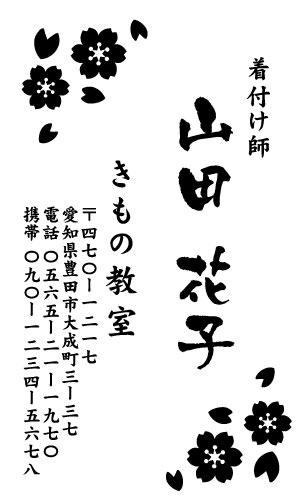 着付け師
山田 花子
きもの教室
〒四七〇ー一二一七
愛知県豊田市大成町三ー三七
電話 〇五六五ー二一ー一九七〇
携帯 〇九〇ー一二三四ー五六七八